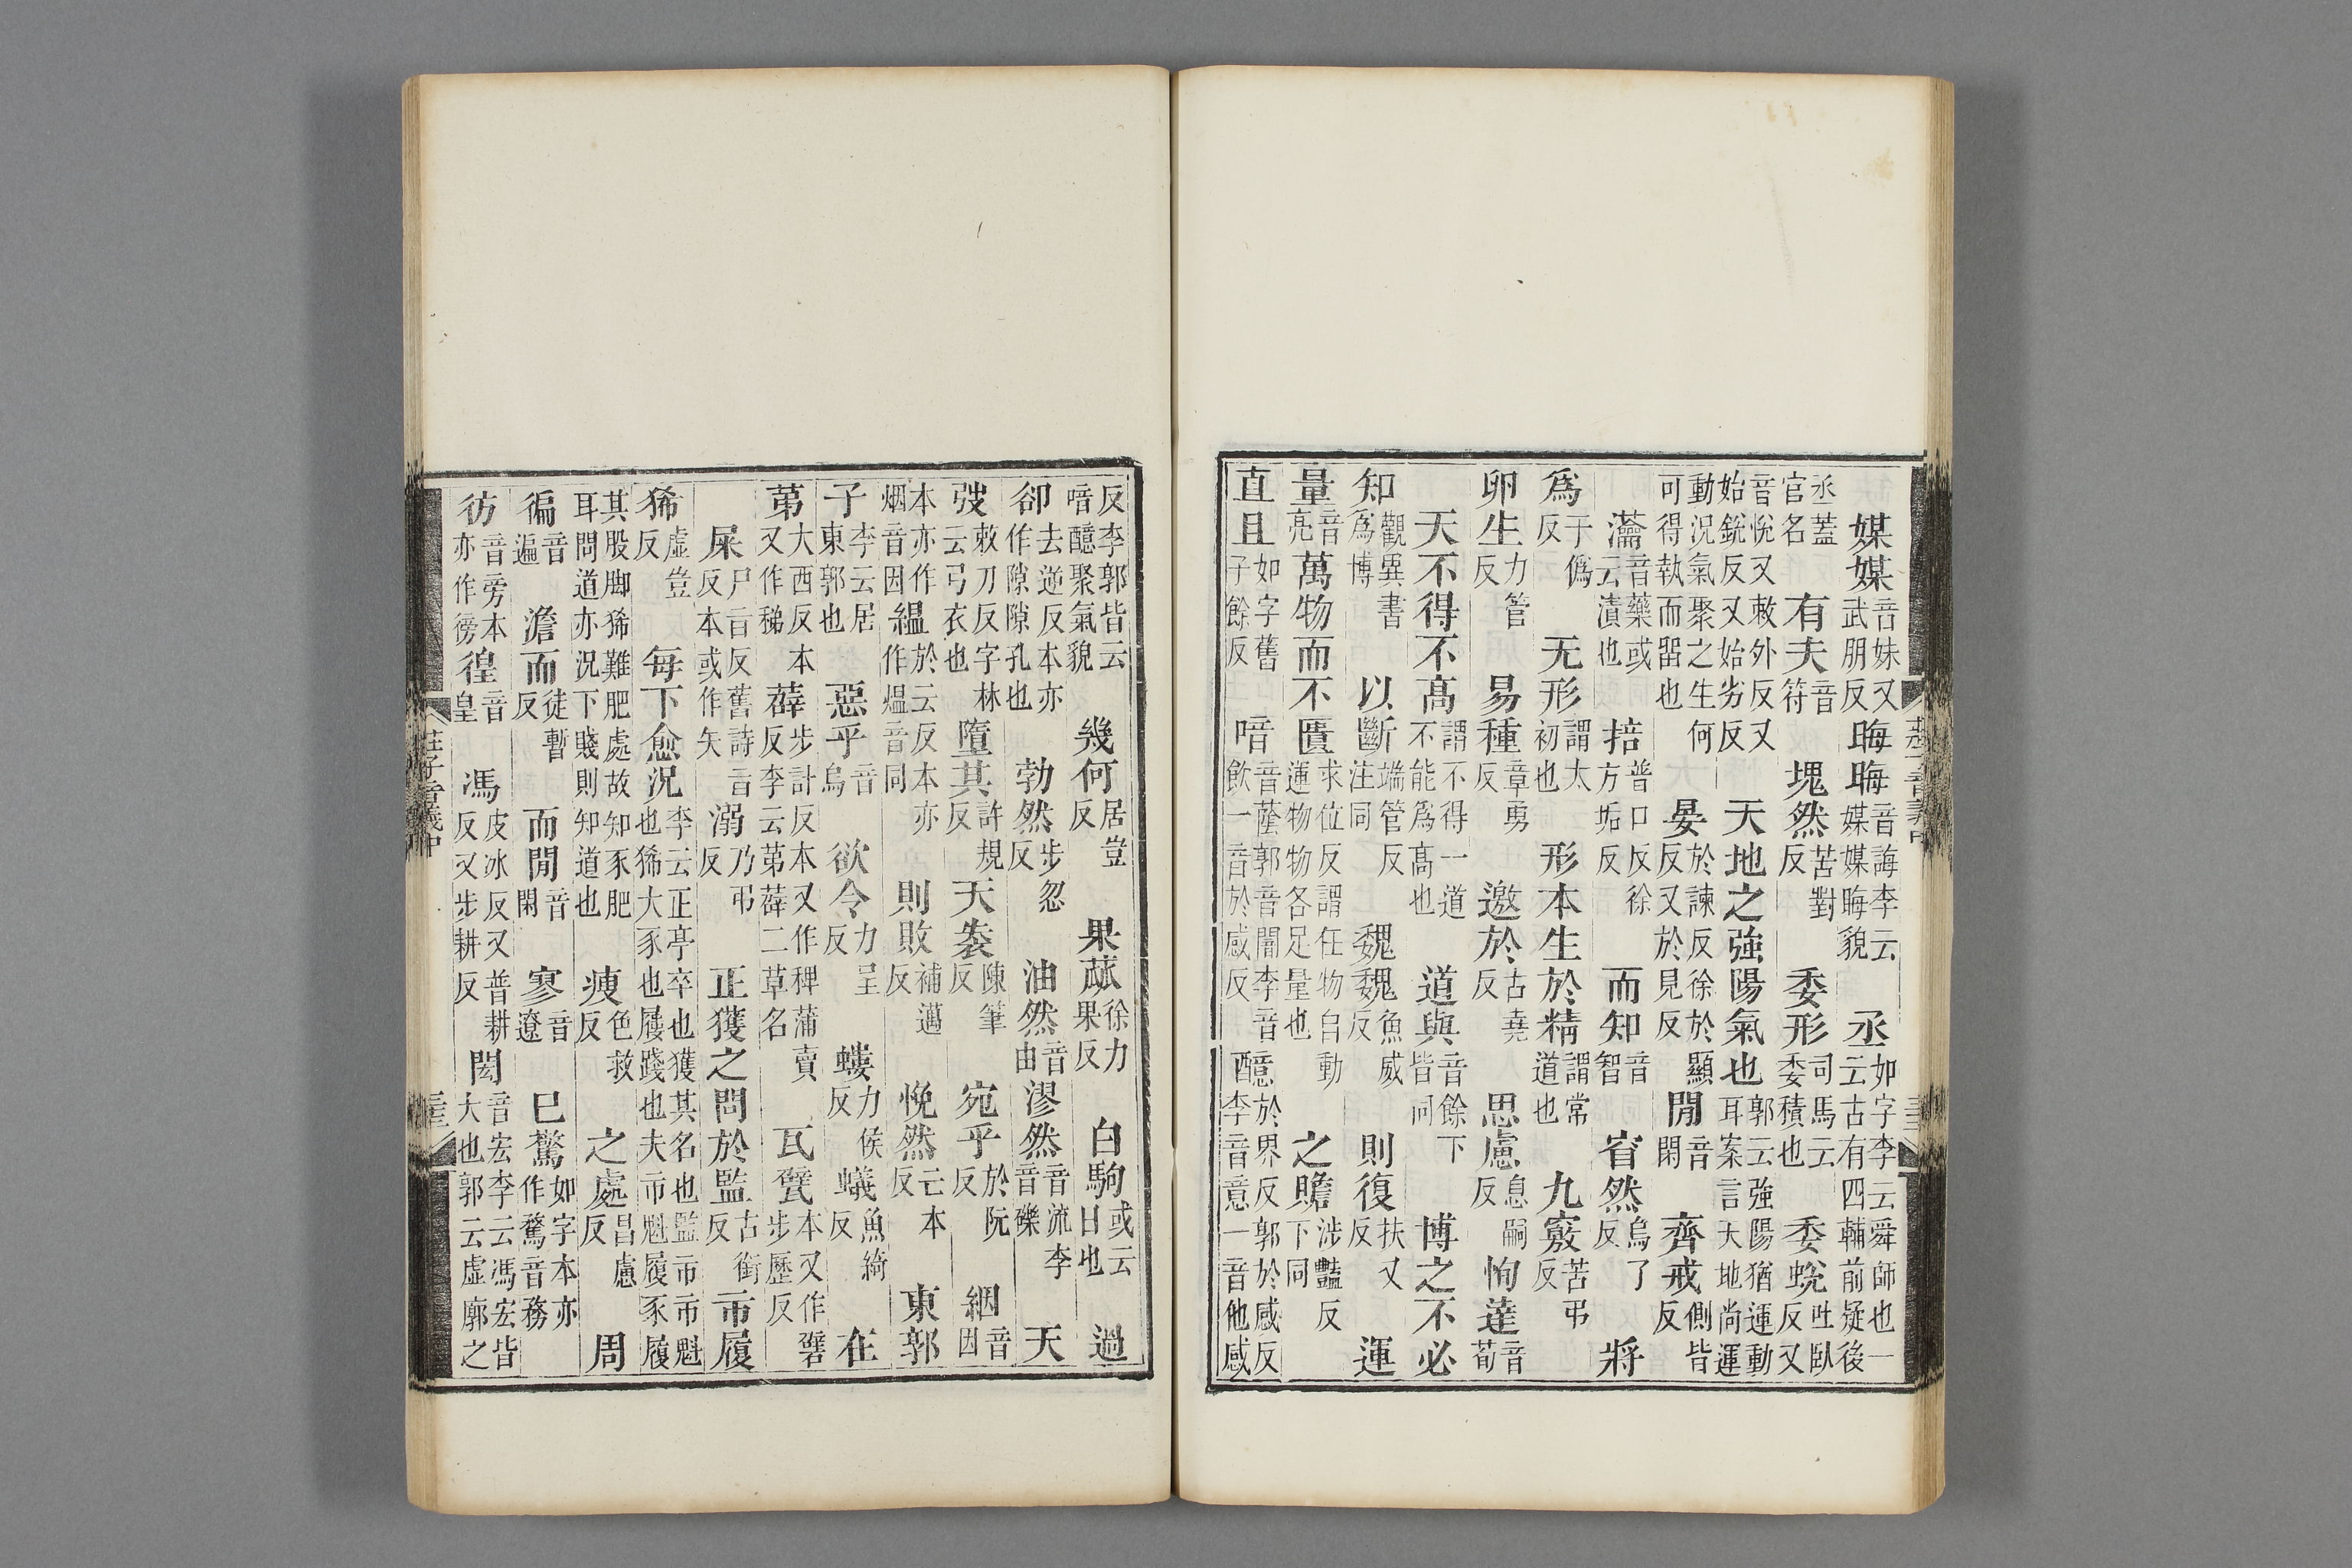 媒媒音妹又武朋反晦晦音誨李云媒媒晦貌丞如字李云舜師也一云古有四輔前疑後
丞蓋官名有夫音符塊然苦對反委形司馬云委積也委蛻吐臥反又
音悅又敕外反又始銳反又始劣反天地之強陽氣也郭云強陽猶運動耳案言天地尚運
動況氣聚之生何可得執而畱也晏於諫反徐於顯反又於見反閒音閑齊戒側皆反
瀹音藥或云漬也掊普口反徐方垢反而知音智窅然烏了反將
爲于僞反无形謂太初也形本生於精謂常道也九竅苦弔反
卵生力管反易種章勇反邀於古堯反思慮息嗣反恂達音荀
天不得不髙謂不得一道不能爲髙也道與音餘下皆同博之不必
知觀異書爲博以斷端管反注同魏魏魚威反則復扶又反運
量音亮萬物而不匱求位反謂任物自動運物物各足量也之贍涉豔反下同
直且如字舊子餘反喑音蔭郭音闇李音飲一音於感反醷於界反郭於感反李音意一音他感
莊子音義中
反李郭皆云喑醷聚氣貌幾何居豈反果蓏徐力果反白駒或云日也過
郤去逆反本亦作隙隙孔也勃然步忽反油然音由漻然音流李音礫天
弢敕刀反字林云弓衣也墮其許規反天袠陳筆反宛乎於阮反絪音因
本亦作烟音因縕於云反本亦作熅音同則敗補邁反悗然亡本反東郭
子李云居東郭也惡乎音烏欲令力呈反螻力侯反蟻魚綺反在
苐大西反本又作稊薜步計反本又作稗蒲賣反李云苐薜二草名瓦甓本又作礕步歷反
屎尸旨反舊詩旨反本或作矢溺乃弔反正獲之問於監古銜反市履
狶虛豈反每下愈況李云正亭卒也獲其名也監市市魁也狶大豕也履踐也夫市魁履豕履
其股脚狶難肥處故知豕肥耳問道亦況下賤則知道也瘦色救反之處昌慮反周
徧音遍澹而徒暫反而閒音閑寥音遼已驚如字本亦作騖音務
彷音旁本亦作徬徨音皇馮皮冰反又普耕反又步耕反閎音宏李云馮宏皆大也郭云虛廓之
莊子音義中